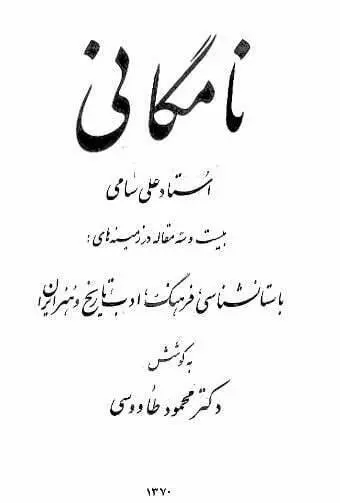 نامگانی
استاد علی سامی
بیست و سه مقاله در زمینه های:
باستانشناسی، فرهنگ، ادب، تاریخ و هنر ایران
به کوشش
دکتر محمود طاووسی
۱۳۷۰